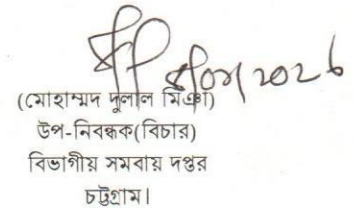 (মোহাম্মদ দুলাল মিঞা)
উপ-নিবন্ধক(বিচার)
বিভাগীয় সমবায় দপ্তর
চট্টগ্রাম।